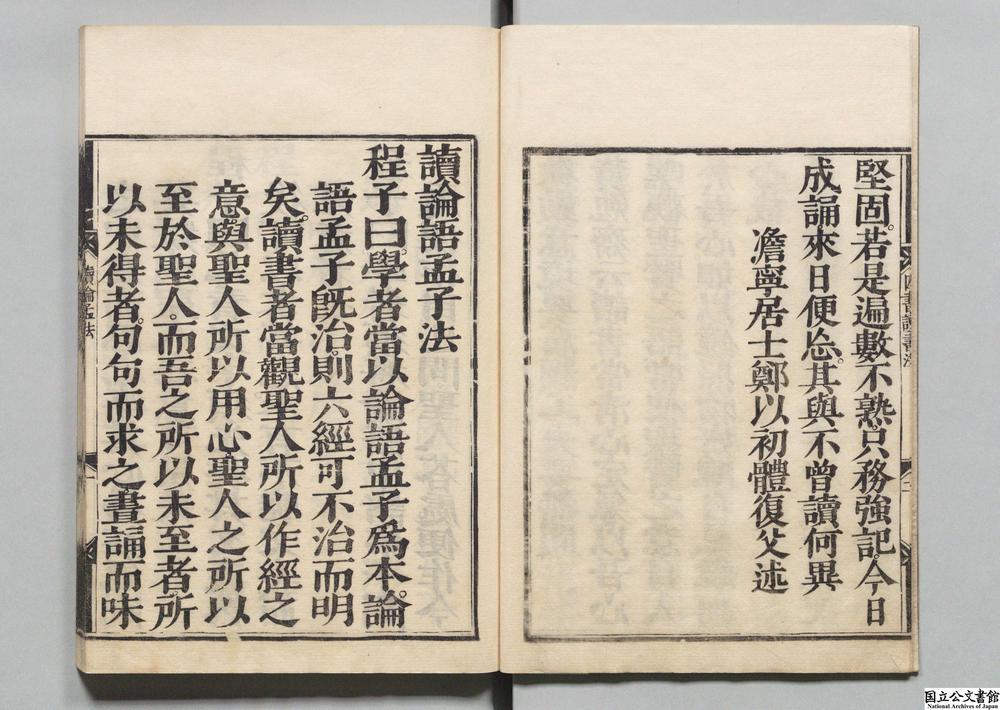 堅固。若是遍數不熟。只務強記。今日
成誦來日便忘。其與不曾讀何異
澹寧居士鄭以初體復父述
四書讀書法
二
讀論語孟子法
程子曰學者當以論語孟子爲本。論
語孟子旣治。則六經可不治而明
矣。讀書者當觀聖人所以作經之
意。與聖人所以用心。聖人之所以
至於聖人。而吾之所以未至者。所
以未得者。句句而求之。晝誦而味
讀論孟法
一
国立公文書館
National Archives of Japan